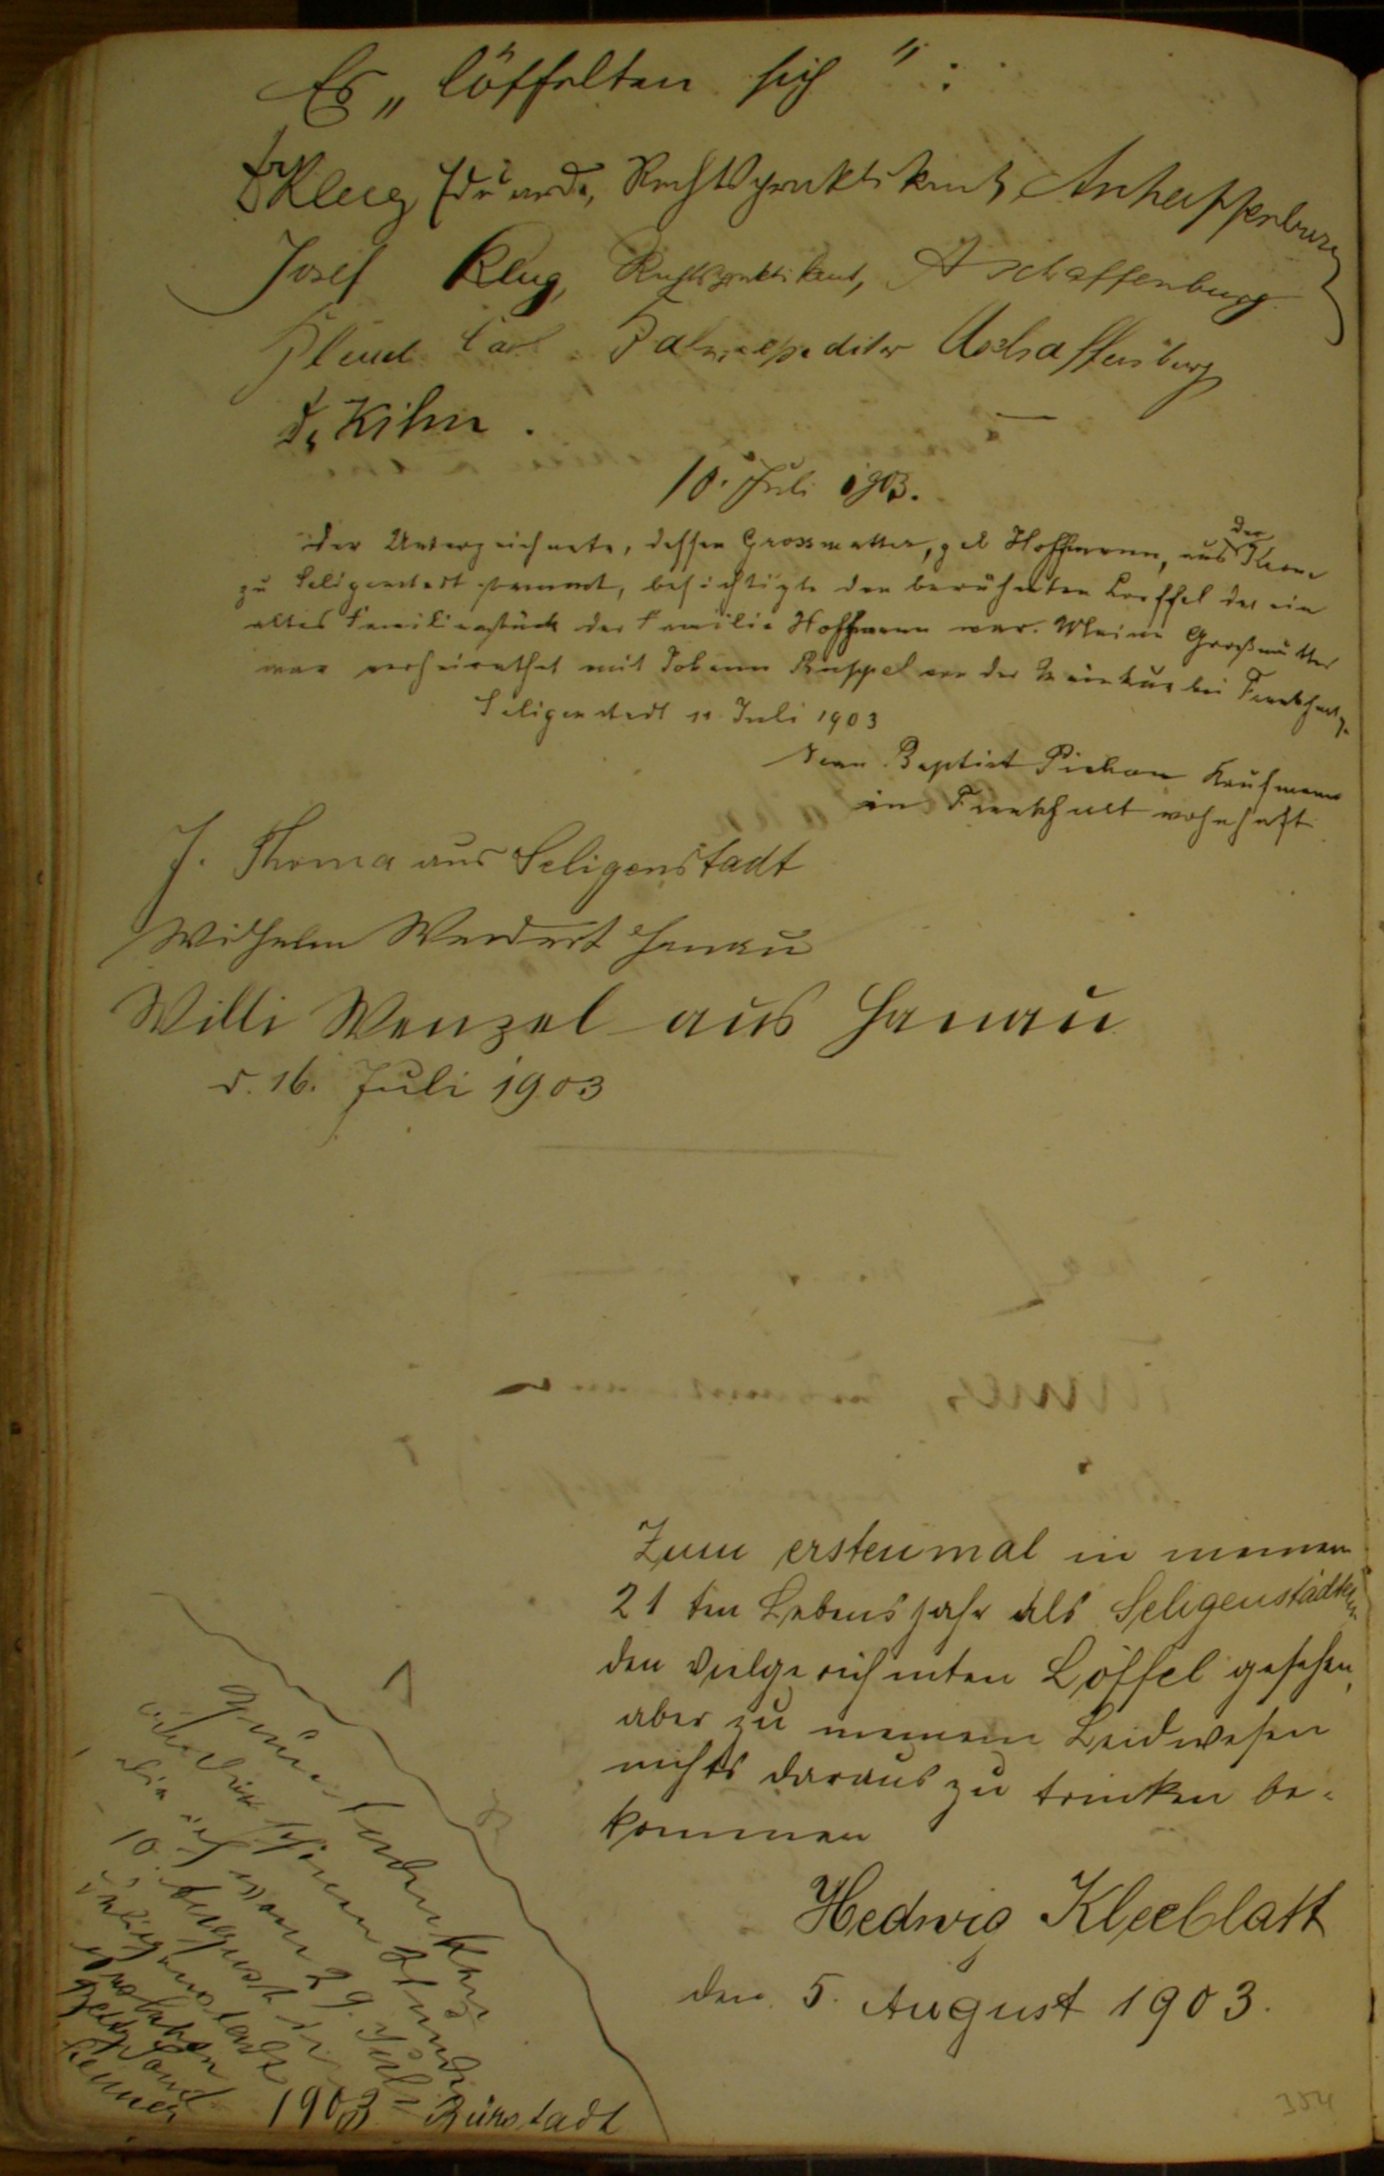 Es „löffelten sich":
Klug Eduard, Rechtspraktikant, Aschaffenburg
Josef Klug, Rechtspraktikant, Aschaffenburg
Carl Bahnexpeditor Aschaffenburg
Dr Kihn.
10. Juli 1903.
Der Unterzeichnete, dessen Grossmutter, geb Hoffmann, aus der Krone
zu Seligenstadt stammt, besichtigte den berühmten Loeffel der ein
altes Familienstück der Familie Hoffmann war. Meine Großmutter
war verheirathet mit Johann Ruppel von der Mainkur bei Frankfurt
Seligenstadt 11 Juli 1903
Jean Baptist Kaufmann
in Frankfurt wohnhaft
J. Thoma aus Seligenstadt
Wilhelm Hanau
Willi Wenzel aus Hanau
d. 16. Juli 1903
Zum erstenmal in meinem
21 ten Lebensjahr als Seligenstädterin
den vielgerühmten Löffel gesehen,
aber zu meinem Leidwesen
nichts daraus zu trinken be-
kommen
Hedwig Kleeblatt
den 5. August 1903.
die schönen Stunden
die ich vom 29. Juli
10. August in
Seligenstadt
1903 = Bürstadt
384